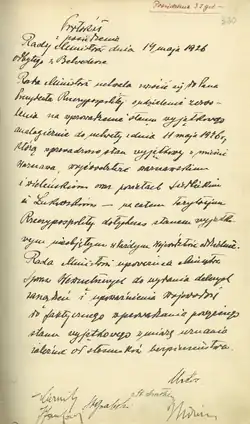 Posiedzenie 33 god.
330
Protokół
z posiedzenia
Rady Ministrów dnia 14 maja 1926
odbytego z Belwederu
Rada Ministrów uchwala zwrócić się do Pana
Prezydenta Rzeczypospolitej o udzielenie zezwo-
lenia na wprowadzenie stanu wyjątkowego
analogicznie do uchwały z dnia 11 maja 1926 r,
którą wprowadzono stan wyjątkowy w mieście
Warszawa, województwie warszawskiem
i oraz powiatach Siedleckim
i Łukowskim — na całem terytorjum
Rzeczypospolitej dotychczas stanem wyjątko-
wym nieobjętym
Rada Ministrów upoważnia Ministra
Spraw Wewnętrznych do wydania dalszych
zarządzeń i upoważnienia wojewodów
do faktycznego wprowadzenia powyższego
stanu wyjątkowego z miarę uznania
zależnie od stosunków bezpieczeństwa.
Witos